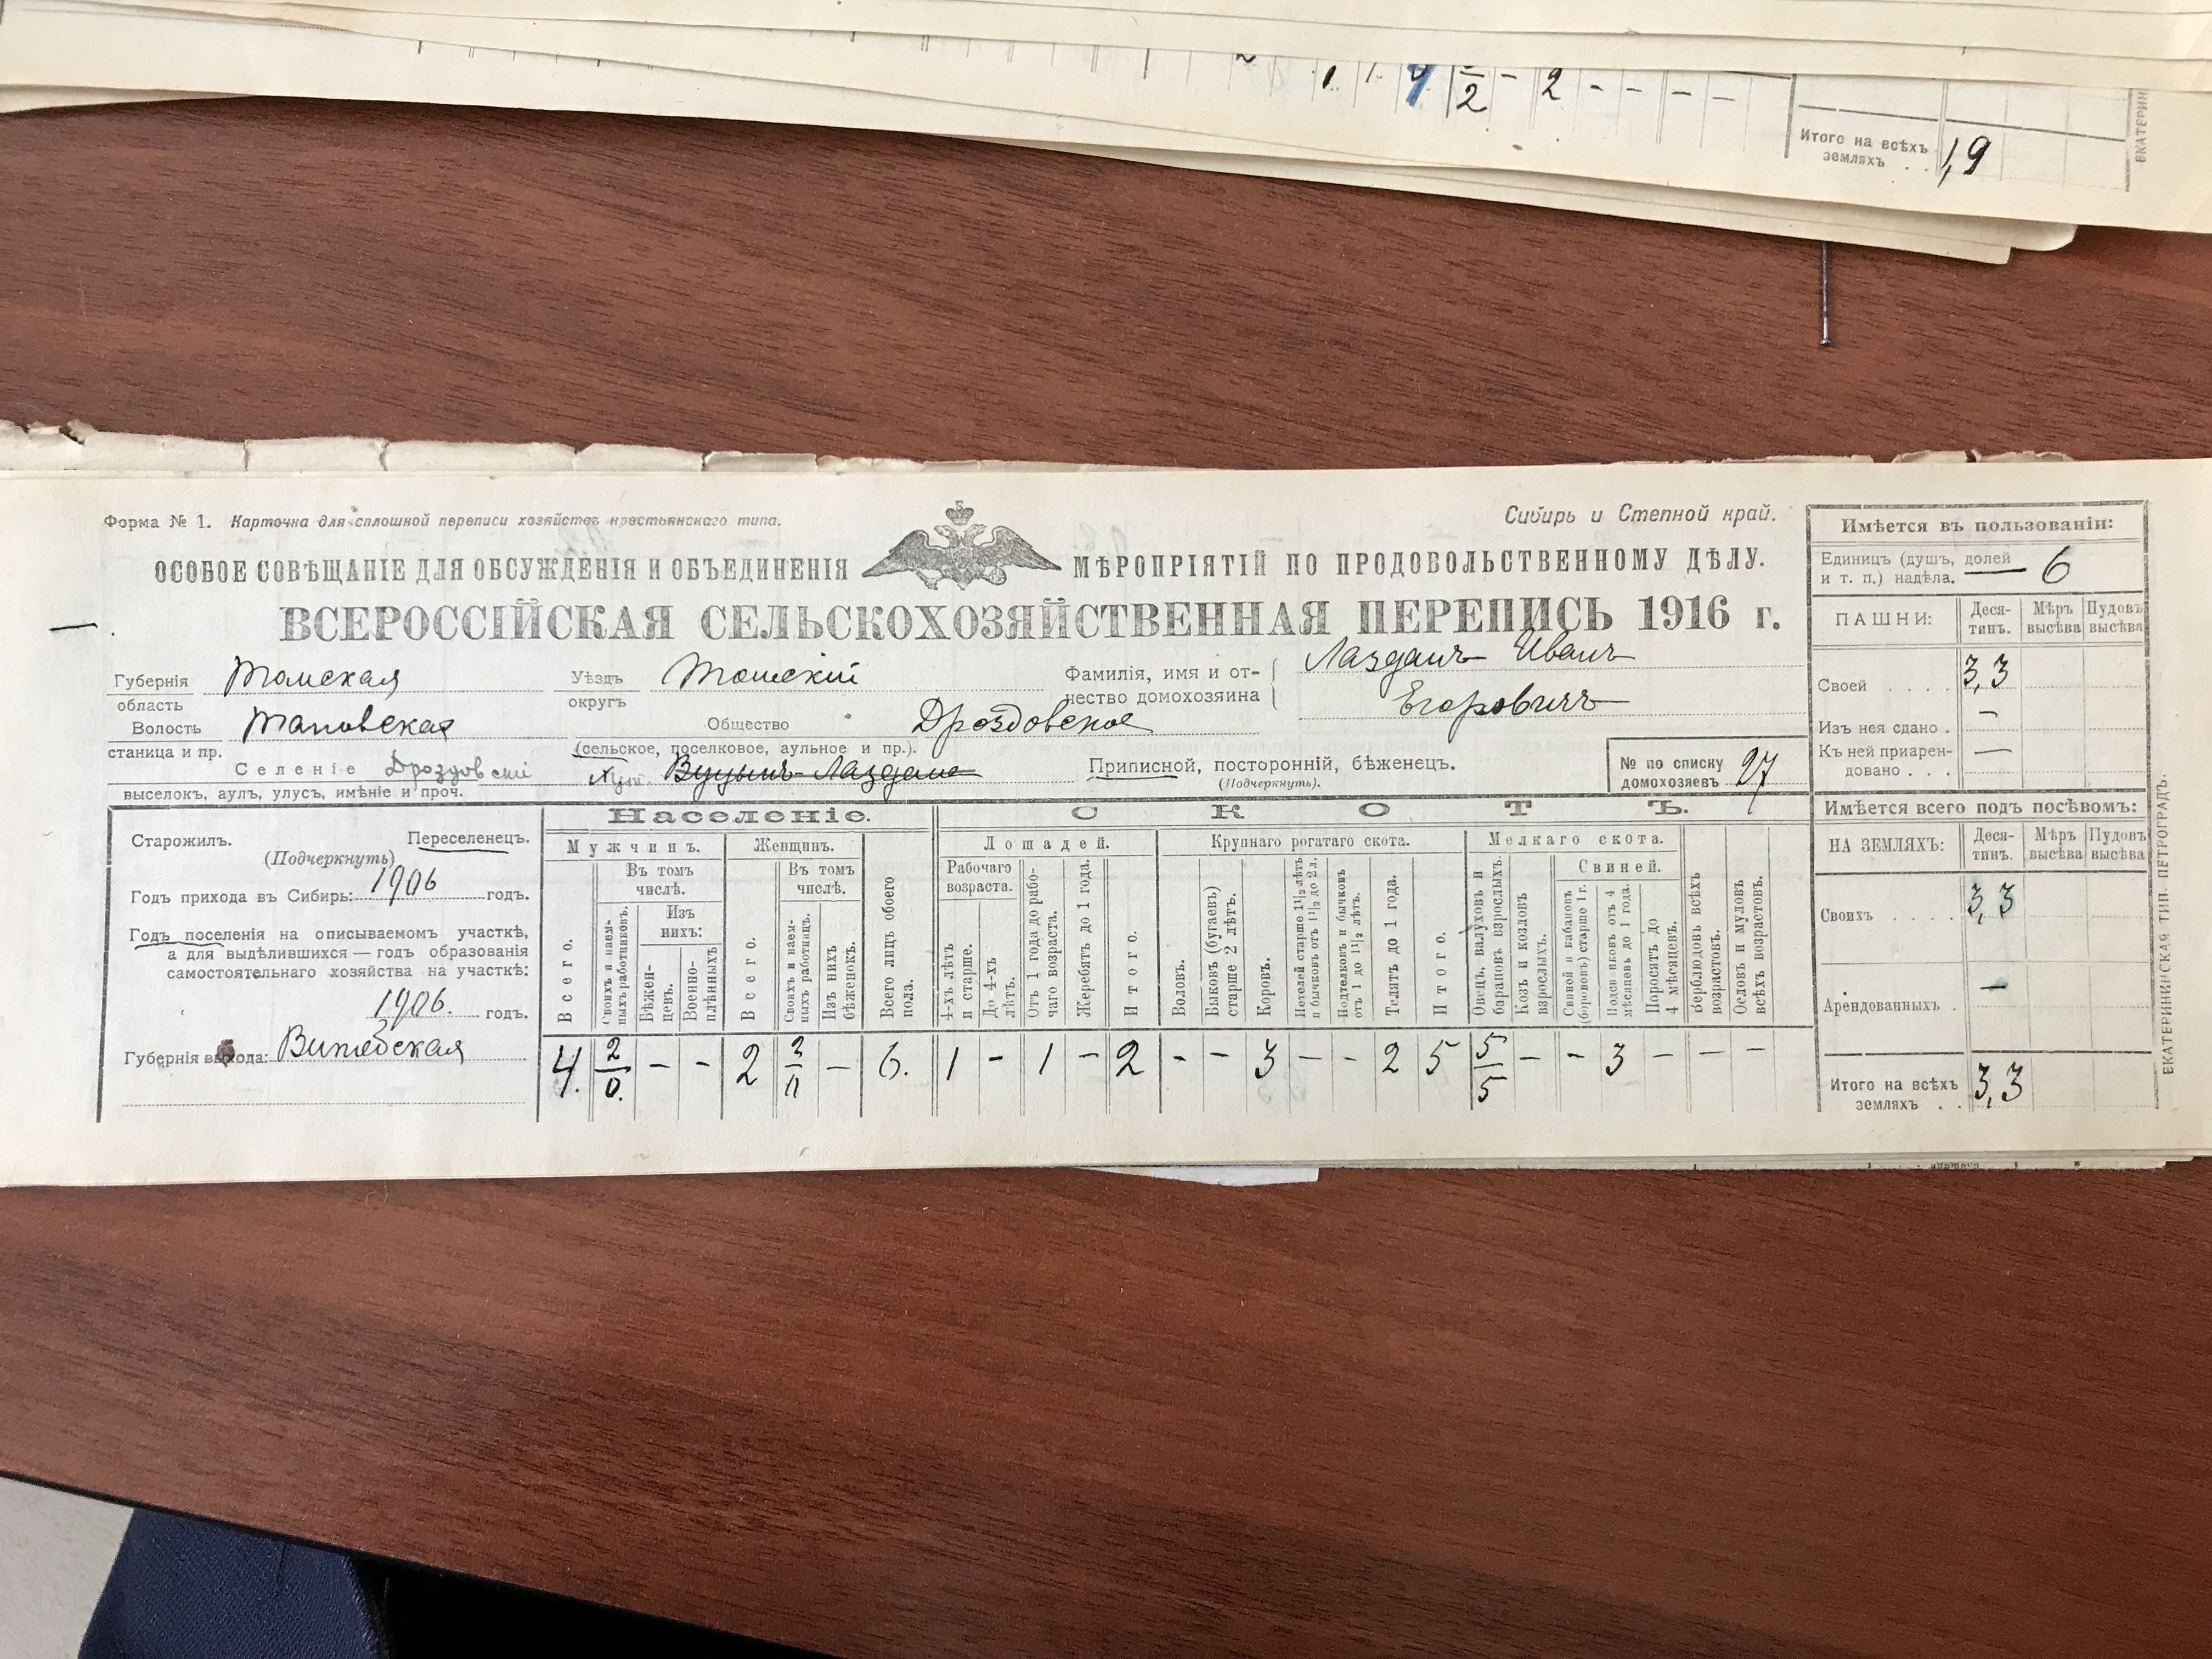 2 1 1 9 2 - 2 - - - -
Итого на всѣхъ
земляхъ . . 1,9
ЕКАТЕРИН
Форма № 1. Карточка для сплошной переписи хозяйствъ крестьянскаго типа.
Сибирь и Степной край.
ОСОБОЕ СОВѢЩАНІЕ ДЛЯ ОБСУЖДЕНІЯ И ОБЪЕДИНЕНІЯ МѢРОПРІЯТІЙ ПО ПРОДОВОЛЬСТВЕННОМУ ДѢЛУ.
ВСЕРОССІЙСКАЯ СЕЛЬСКОХОЗЯЙСТВЕННАЯ ПЕРЕПИСЬ 1916 г.
Губернія Томская Уѣздъ Томскій Фамилія, имя и от- Лазданъ Иванъ
область округъ чество домохозяина Егоровичъ
Волость Таловская Общество Дроздовское
станица и пр. (сельское, поселковое, аульное и пр.).
Селеніе Дроздовскій Хут. Приписной, посторонній, бѣженецъ.
выселокъ, аулъ, улусъ, имѣніе и проч. (Подчеркнуть).
№ по списку
домохозяевъ 27
Старожилъ. Переселенецъ.
(Подчеркнуть)
Годъ прихода въ Сибирь: 1906 годъ.
Годъ поселенія на описываемомъ участкѣ,
а для выдѣлившихся — годъ образованія
самостоятельнаго хозяйства на участкѣ:
1906. годъ.
Губернія выхода: Витебская
Населеніе.
Мужчинъ.
Женщинъ.
Всего.
Въ томъ
числѣ.
Своихъ и наем-
ныхъ работниковъ.
Изъ
нихъ:
Бѣжен-
цевъ.
Военно-
плѣнныхъ
Всего.
Въ томъ
числѣ.
Своихъ и наем-
ныхъ работницъ.
Изъ нихъ
бѣженокъ.
Всего лицъ обоего
пола.
СКОТЪ.
Лошадей.
Рабочаго
возраста.
4-хъ лѣтъ
и старше.
До 4-хъ
лѣтъ.
Отъ 1 года до рабо-
чаго возраста.
Жеребятъ до 1 года.
Итого.
Крупнаго рогатаго скота.
Воловъ.
Быковъ (бугаевъ)
старше 2 лѣтъ.
Коровъ.
Нетелей старше 1 1/2 лѣтъ
и бычковъ отъ 1 1/2 до 2 л.
Подтелковъ и бычковъ
отъ 1 до 1 1/2 лѣтъ.
Телятъ до 1 года.
Итого.
Мелкаго скота.
Овецъ, валуховъ и
барановъ взрослыхъ.
Козъ и козловъ
взрослыхъ.
Свиней.
Свиней и кабановъ
(борововъ) старше 1 г.
Подсвинковъ отъ 4
мѣсяцевъ до 1 года.
Поросятъ до
4 мѣсяцевъ.
Верблюдовъ всѣхъ
возрастовъ.
Ословъ и муловъ
всѣхъ возрастовъ.
4. 2/0. - - 2 2/11 - 6. 1 - 1 - 2 - - 3 - - 2 5 5/5 - - 3 - - -
Имѣется въ пользованіи:
Единицъ (душъ, долей
и т. п.) надѣла. 6
ПАШНИ: Деся-
тинъ. Мѣръ
высѣва Пудовъ
высѣва
Своей . . . . 3,3
Изъ нея сдано . -
Къ ней приарен-
довано . . . -
Имѣется всего подъ посѣвомъ:
НА ЗЕМЛЯХЪ: Деся-
тинъ. Мѣръ
высѣва Пудовъ
высѣва
Своихъ . . . . 3,3
Арендованныхъ . -
Итого на всѣхъ
земляхъ . . 3,3
ЕКАТЕРИНИНСКАЯ ТИП. ПЕТРОГРАДЪ.